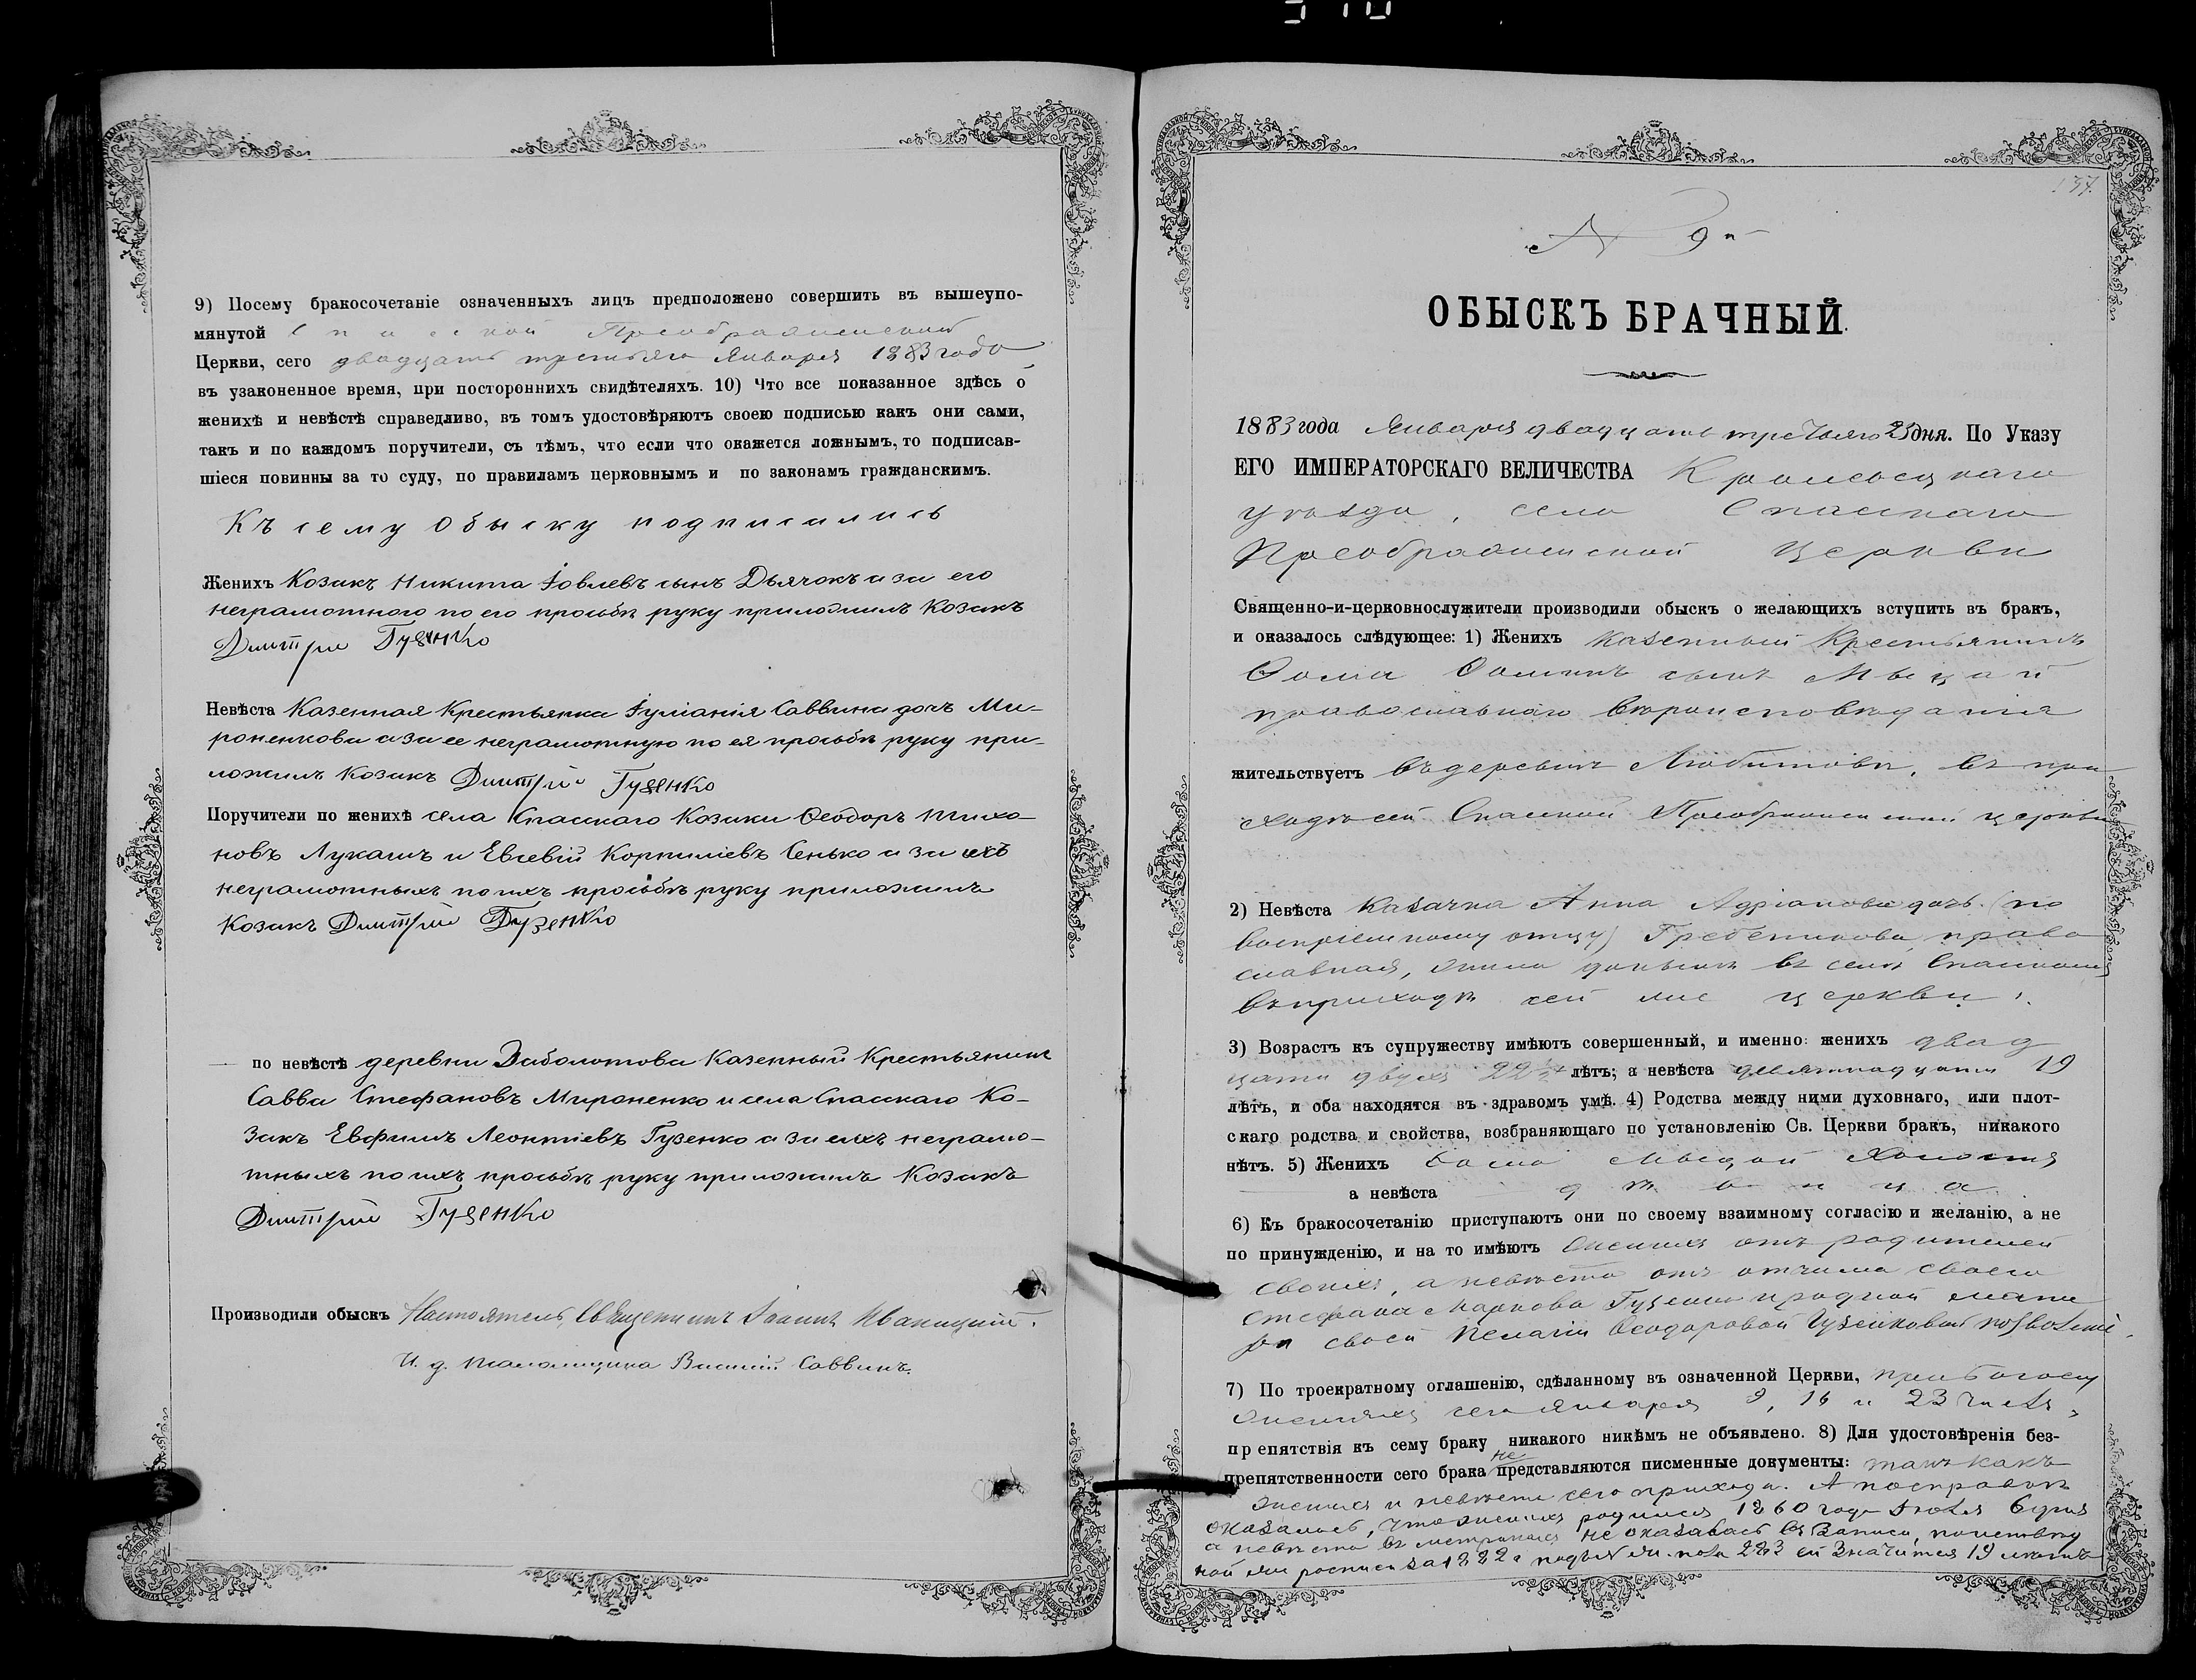 9) Посему бракосочетаніе означенныхъ лицъ предположено совершить въ вышеупо-
мянутой Спасской Преображенской
Церкви, сего двадцать третьяго Января 1883 года
въ узаконенное время, при постороннихъ свидѣтеляхъ. 10) Что все показанное здѣсь о
женихѣ и невѣстѣ справедливо, въ томъ удостовѣряютъ своею подписью какъ они сами,
такъ и по каждомъ поручители, съ тѣмъ, что если что окажется ложнымъ, то подписав-
шіеся повинны за то суду, по правиламъ церковнымъ и по законамъ гражданскимъ.
Къ сему обыску подписались
Женихъ Козакъ Никита Іовлевъ сынъ Дьячокъ а за его
неграмотного по его просьбѣ руку приложилъ Козакъ
Дмитрій Гузенко
Невѣста Казенная Крестьянка Іуліанія Саввина дочь Ми-
роненкова а за ее неграмотную по ея просьбѣ руку при-
ложилъ Козакъ Дмитрій Гузенко
Поручители по женихѣ села Спасскаго Козаки Ѳеодоръ Тихо-
новъ Лукашъ и Евсевій Корниліевъ Сенько а за ихъ
неграмотныхъ по ихъ просьбѣ руку приложилъ
Козакъ Дмитрій Гузенко
по невѣстѣ деревни Заболотова Казенный Крестьянинъ
Савва Стефановъ Мироненко и села Спасскаго Ко-
закъ Евфимъ Леонтіевъ Гузенко а за ихъ неграмо-
тныхъ по ихъ просьбѣ руку приложилъ Козакъ
Дмитрій Гузенко
Производили обыскъ Настоятель, Священникъ Іоаннъ Иваницкій.
И. д. Пономаря Саввинъ.
137
№ 9й
ОБЫСКЪ БРАЧНЫЙ.
1883 года Января двадцать третьяго 23 дня. По Указу
ЕГО ИМПЕРАТОРСКАГО ВЕЛИЧЕСТВА Кролевецкаго
уѣзда, села Спасскаго
Преображенской церкви
Священно-и-церковнослужители производили обыскъ о желающихъ вступить въ бракъ,
и оказалось слѣдующее: 1) Женихъ казенный Крестьянинъ
Ѳома Ѳоминъ сынъ Мыцай
православнаго вѣроисповѣданія
жительствуетъ въ деревнѣ Любитовѣ, въ при
ходѣ сей Спасской Преображенской церкви
2) Невѣста Казачка Анна Адріанова дочь (по
воспріемному отцу) Гребеникова, право
славная, жила донынѣ въ селѣ Спаскомъ
въ приходѣ сей же церкви.
3) Возрастъ къ супружеству имѣютъ совершенный, и именно: женихъ двад
цати двухъ 22½ лѣтъ; а невѣста девятнадцати 19
лѣтъ, и оба находятся въ здравомъ умѣ. 4) Родства между ними духовнаго, или плот-
скаго родства и свойства, возбраняющаго по установленію Св. Церкви бракъ, никакого
нѣтъ. 5) Женихъ Ѳома Мыцай холостъ
а невѣста дѣвица
6) Къ бракосочетанію приступаютъ они по своему взаимному согласію и желанію, а не
по принужденію, и на то имѣютъ Женихъ отъ родителей
своихъ, а невѣста отъ отчима своего
Стефана Маркова Гузенко и родной мате
ри своей Пелагіи Ѳеодоровой Гузенковой позволеніе.
7) По троекратному оглашенію, сдѣланному въ означенной Церкви, при Богослу
женіяхъ сего Января 9, 16 и 23 числъ,
препятствія къ сему браку никакого никѣмъ не объявлено. 8) Для удостовѣренія без-
препятственности сего брака не представляются писменные документы: такъ какъ
женихъ и невѣста сего прихода. А по справкѣ
оказалось, что женихъ родился 1860 года Іюля 6 дня
а невѣста въ метрикахъ не оказалась въ записи, по исповѣд
ной же росписи за 1882 г подъ № 283 ей значится 19 лѣтъ